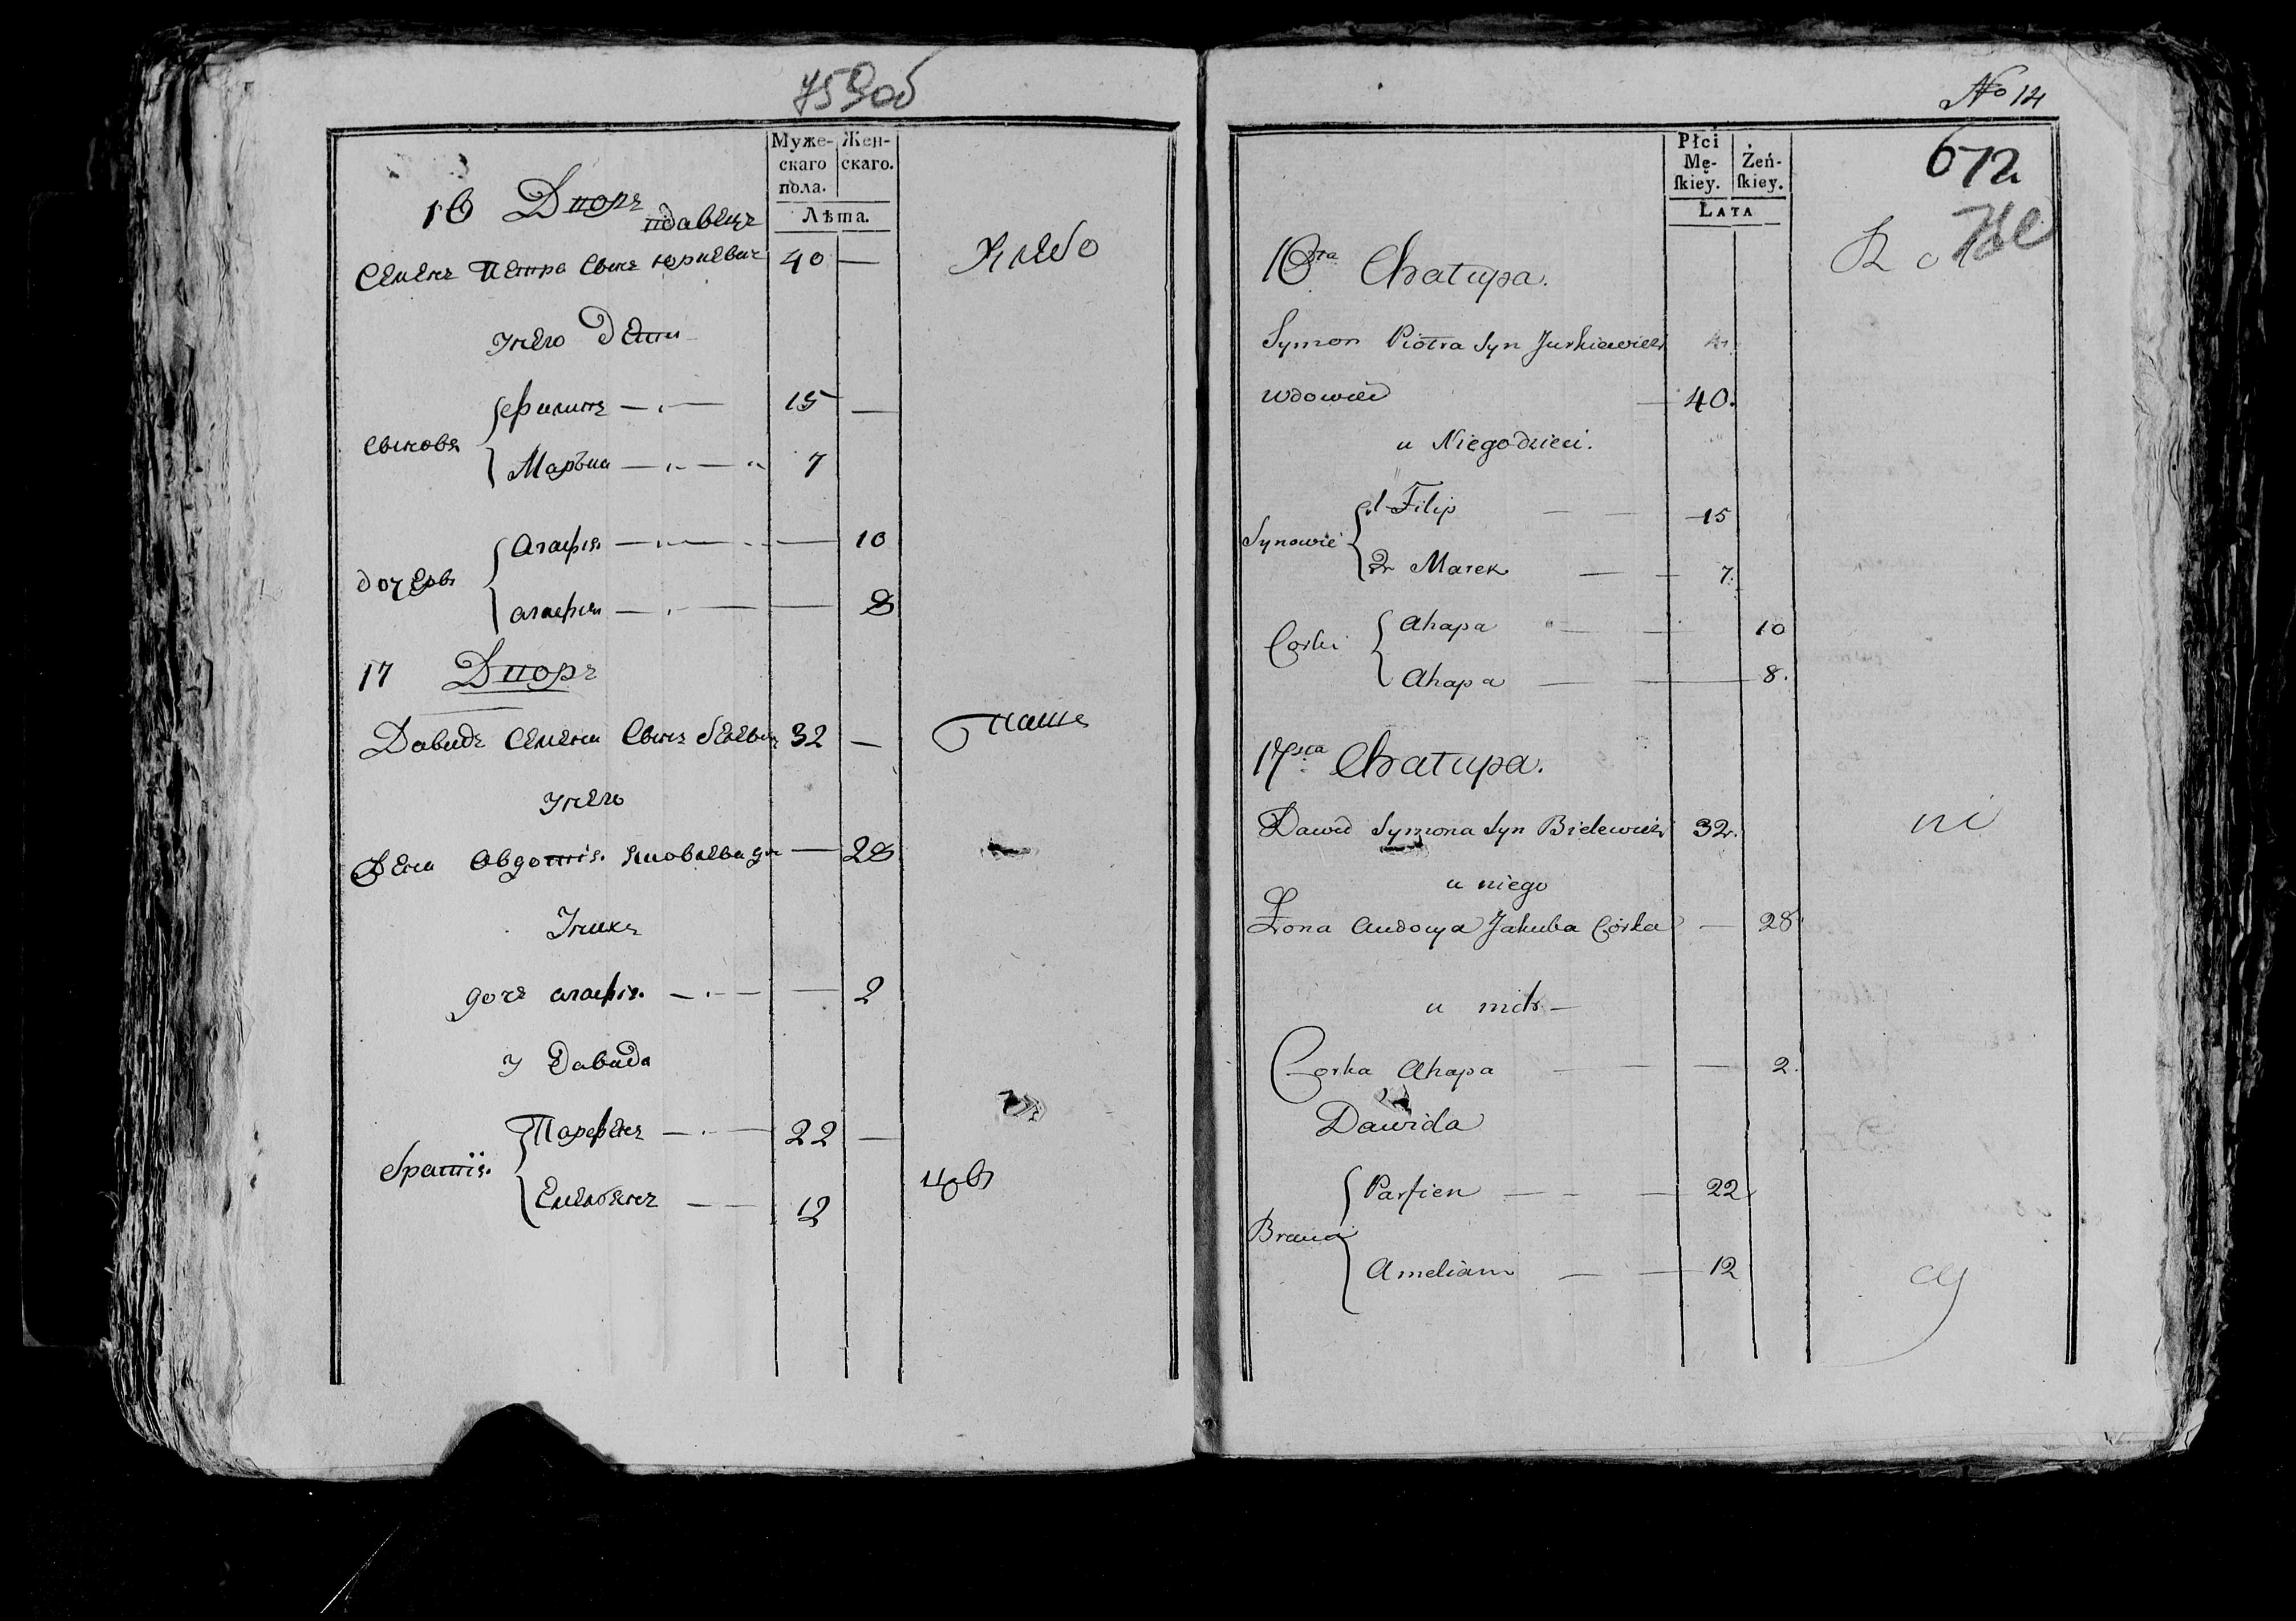 759об
Муже-скаго пола. Жен-скаго.
Лѣта.
16 Дворъ
вдавецъ
Семенъ Петра Сынъ Юркевичъ 40 — Хлебо
У него Дети
Сыновя
Филипъ — 15 —
Марька — 7
дочерѣ
Агафія — 10
агафія — 8
17 Дворъ
Давидъ Семена Сынъ Белевич 32 — паше
У него
Жена Авдотія Яковлева до — 28
У них
дочь агафія — 2
У Давида
братія
Парфенъ — 22 —
Емельянъ — 12
цовъ
No 14
672
Płci Mę-ſkiey. Żeń-ſkiey.
LATA
16sta Chatupa.
Symon Piotra Syn Jurkiewicz
wdowiec — 40.
u Niego dzieci.
Synowie
1 Filip — 15
2 Marek — 7.
Corki
Ahapa — 10
Ahapa — 8.
17sta Chatupa.
Dawid Symona Syn Bielewicz 32. ni
u niego
Żona Audocya Jakuba Córka — 28
u nich —
Corka Ahapa — 2.
Dawida
Bracia
Parfien — 22
Ameliam — 12
cy